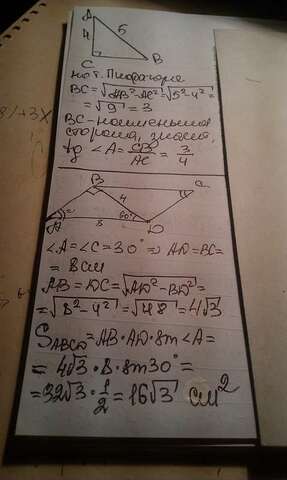 A
4
5
C
B
по т. Пифагора
BC=√AB²-AC²=√5²-4²=
=√9=3
BC-наименьшая
сторона, значит,
tg ∠A=CB/AC=3/4
B
C
4
60°
A
8
D
∠A=∠C=30°⇒AD=BC=
=8см
AB=DC=√AD²-BD²=
=√8²-4²=√48=4√3
S ABCD=AB·AD·sin∠A=
=4√3·8·sin30°=
=32√3·1/2=16√3 см²